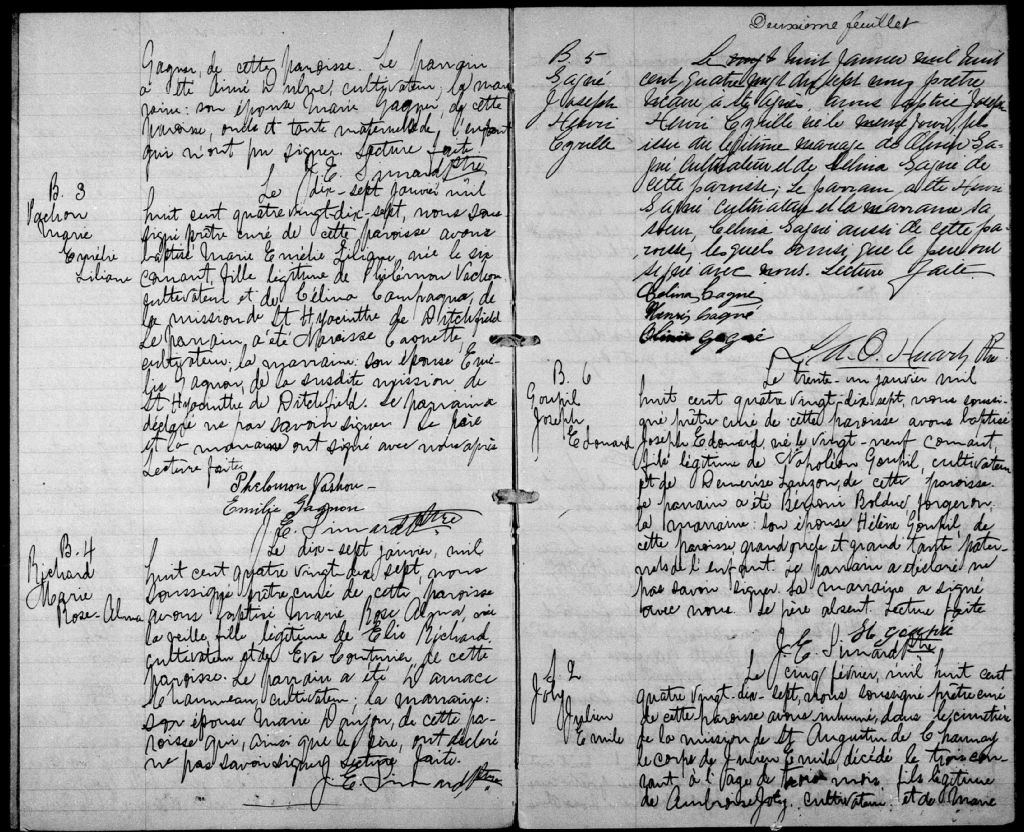 Gagner, de cette paroisse. Le parrain
a été Aimé Dulac, cultivateur; la mar-
raine: son épouse Marie Gagné, de cette
paroisse, oncle et tante maternels de l'enfant
qui n'ont pu signer. Lecture faite.
J. E. Simard Ptre
B. 3
Vachon
Marie
Emélie
Liliane
Le dix-sept janvier mil
huit cent quatre vingt-dix-sept, nous sous-
signé prêtre curé de cette paroisse avons
baptisé Marie Emélie Liliane, née le six
courant, fille légitime de Philémon Vachon
cultivateur et de Célina Campagna, de
la mission de St Hyacinthe de Ditchfield
Le parrain a été Narcisse Caouette,
cultivateur; la marraine: son épouse Emé-
lie Gagnon, de la susdite mission de
St Hyacinthe de Ditchfield. Le parrain a
déclaré ne pas savoir signer. Le père
et la marraine ont signé avec nous après
Lecture faite.
Phelomon Vashon
Emilie Gagnon
J. E. Simard Ptre
B. 4
Richard
Marie
Rose-Alma
Le dix-sept janvier, mil
huit cent quatre vingt-dix sept, nous
soussigné prêtre curé de cette paroisse
avons baptisé Marie Rose Alma, née
la veille, fille légitime de Elie Richard,
cultivateur et de Eva Couturier, de cette
paroisse. Le parrain a été Damase
cultivateur; la marraine:
son épouse Marie de cette pa-
roisse qui, ainsi que le père, ont déclaré
ne pas savoir signer. Lecture faite.
J. E. Simard, Ptre
Deuxième feuillet
B. 5
Gagné
Joseph
Henri
Cyrille
Le vingt huit Janvier mil huit
cent quatre vingt dix sept nous prêtre
vicaire avons baptisé Joseph
Henri Cyrille né le même jour,
issu du légitime mariage de Gagné
cultivateur et de Gagné de
cette paroisse; Le parrain a été Henri
Gagné cultivateur et la marraine sa
sœur, Celina Gagné aussi de cette pa-
roisse, lesquels ainsi que le père ont
signé avec nous. Lecture faite.
Celina Gagné
Henri Gagné
Gagné
Huard Ptre
B. 6
Goupil
Joseph
Edouard
Le trente-un janvier mil
huit cent quatre vingt-dix sept, nous soussi-
gné prêtre curé de cette paroisse avons baptisé
Joseph Edouard, né le vingt-neuf courant,
fils légitime de Napoléon Goupil, cultivateur
et de Demerise Lauzon, de cette paroisse.
Le parrain a été Bénoni Bolduc forgeron,
la marraine: son épouse Hélène Goupil, de
cette paroisse, grand oncle et grand tante pater-
nels de l'enfant. Le parrain a déclaré ne
pas savoir signer. La marraine a signé
avec nous. Le père absent. Lecture faite
J. E. Simard Ptre
S. 2
Joly
Julien
Emile
Le cinq février, mil huit cent
quatre vingt-dix-sept, nous soussigné prêtre curé
de cette paroisse avons inhumé, dans le cimetière
de la mission de St Augustin de
le corps de Julien Emile décédé le trois cou-
rant à l'âge de mois, fils légitime
de Ambroise Joly, cultivateur et de Marie